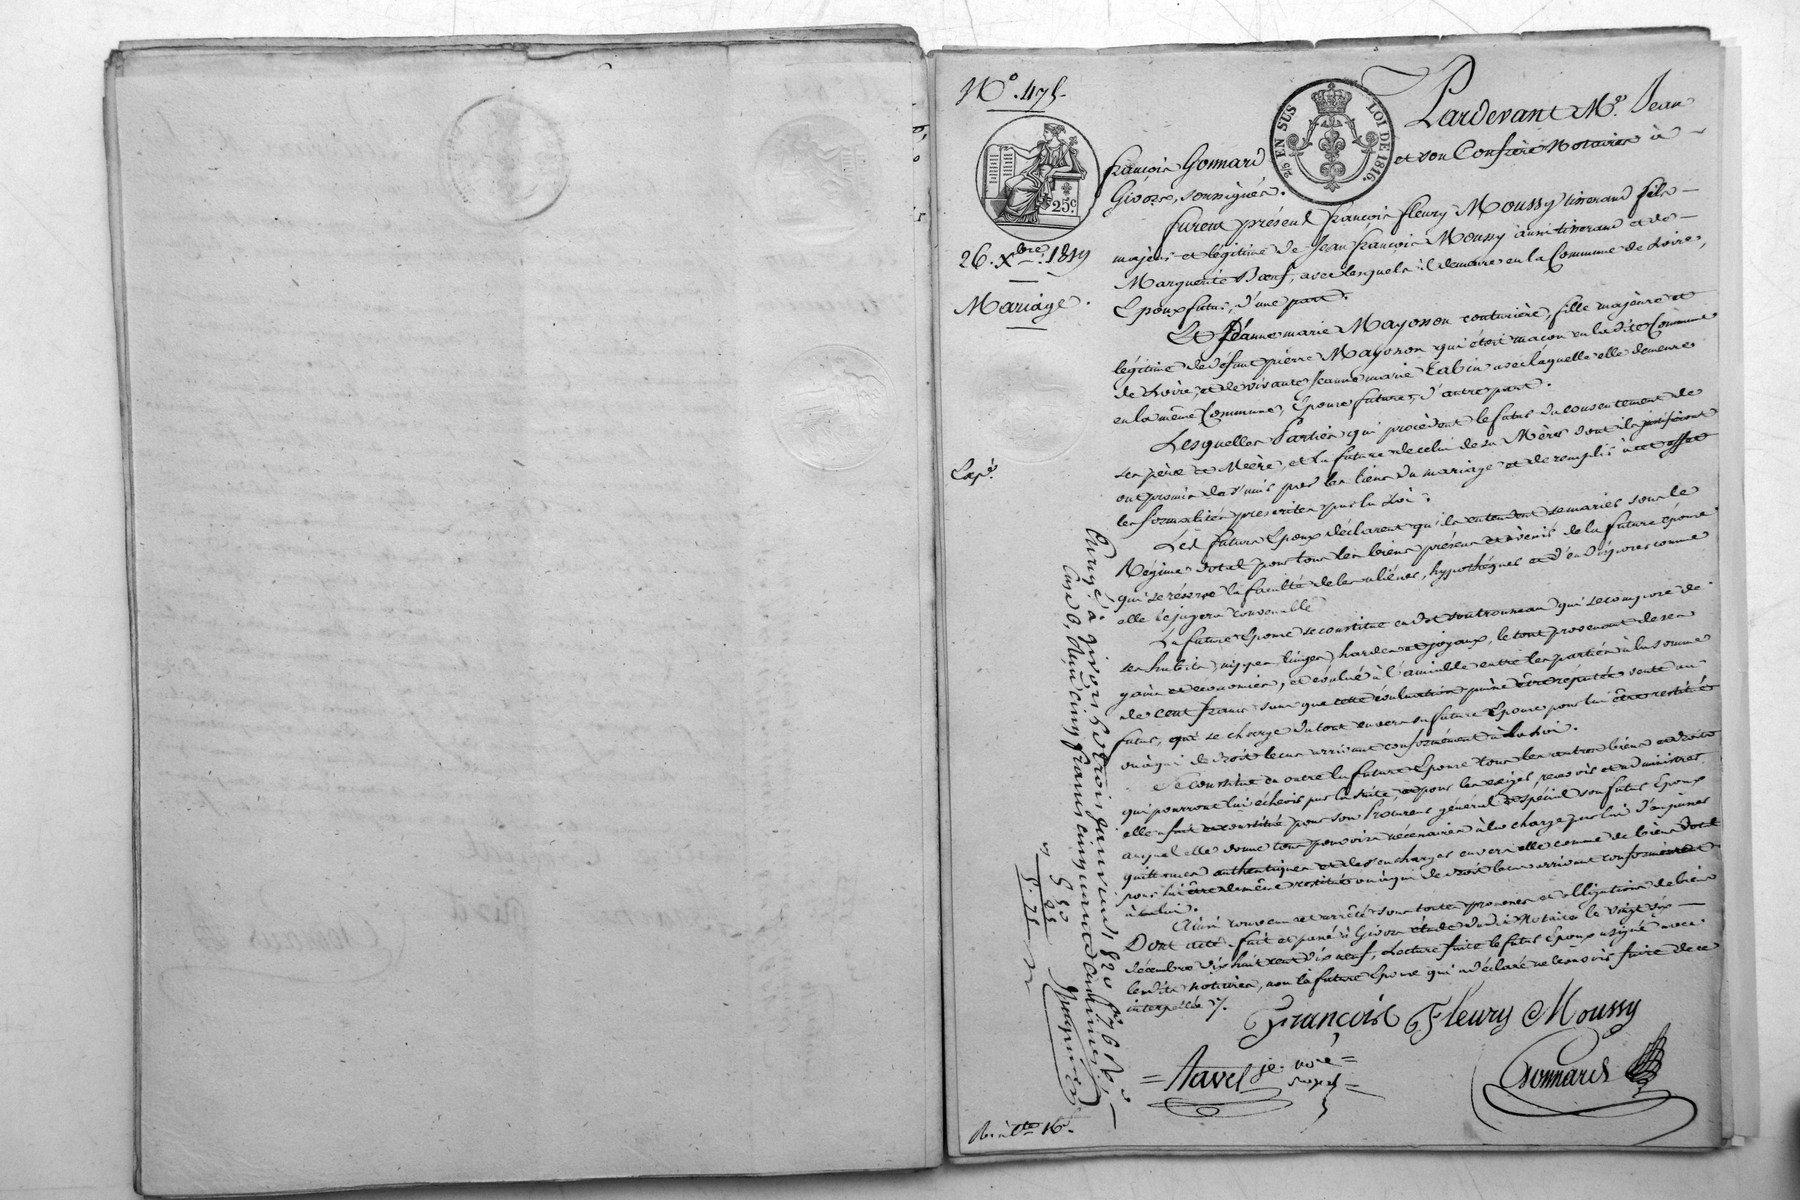 N.° 475.
25.c
2/5 EN SUS
LOI DE 1816.
26. Xbre. 1819
Mariage.
Exp.é
Pardevant M.e Jean
françois Gonnard et son Confrère Notaires à
Givors, soussignés.
furent présent françois fleury Moussy tisserand fils
majeur et légitime de Jean françois Moussy aussi tisserand et de
Marguerite Bœuf, avec lesquels il demeure en la Commune de Loire,
Epoux futur, d'une part.
Et Jéanne marie Mayosson couturière, fille majeure et
légitime de défunt pierre Mayosson qui étoit maçon en ladite Commune
de Loire, et de vivante Jeanne marie Tabin avec laquelle elle demeure
en la même Commune, Epouse future, d'autre part.
Lesquelles Parties qui procèdent le futur du consentement de
ses père et Mère, et la future de celui de sa Mère dont ils justifieront
ont promis de s'unir par les liens du mariage et de remplir à cet effet
les formalités prescrites par la Loi.
Les futurs Epoux déclarent qu'ils entendent se mariés sous le
Régime dotal pour tous les biens présens et à venir de la future épouse
qui se réserve la faculté de les aliéner, hypothéquer et d'en disposer comme
elle le jugera convenable
La future Epouse se constitue en dot son trousseau qui se compose de
ses habits, nippes, linges, hardes et joyaux, le tout provenant de ses
gains et économies, et évalué à l'amiable entre les parties à la somme
de cent francs sans que cette évaluation puisse être réputée vente au
futur, qui se charge du tout envers sa future Epouse pour lui être restitué
ou à qui de droit le cas arrivant conformément à la Loi.
Se constitue en outre la future Epouse tous les autres biens et droits
qui pourront lui échoir par la suite, et pour les exiger, recevoir et administrer
elle a fait et constitué pour son Procureur général et spécial son futur Epoux
auquel elle donne tous pouvoirs nécessaires à la charge par lui d'en passer
quittances authentiques et de s'en charger envers elle comme de biens dotal
pour lui être de même restitué ou à qui de droit le cas arrivant conformément
à la loi.
Ainsi convenu et arrêté sous toute promesses et obligations de biens
Dont acte fait et passé à Givors étude dudit Notaire le vingt six
décembre dix huit cent dix neuf, Lecture faite le futur Epoux a signé avec
lesdits notaires, non la future Epouse qui a déclaré ne le savoir faire de ce
interpellée ./.
François Fleury Moussy
Navel je. no.re
royal
Gonnard
Enregé à Givors le trois janvier 1820 f.° 76 R.°
Case 6, Reçu cinq francs cinquante centimes
5 50
55